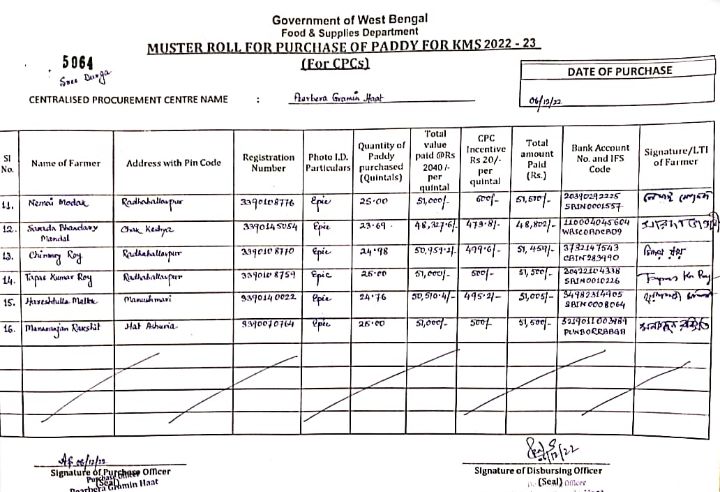 Government of West Bengal
Food & Supplies Department
MUSTER ROLL FOR PURCHASE OF PADDY FOR KMS 2022 - 23
(For CPCs)
5064
Sree Durga
DATE OF PURCHASE
06/12/22
CENTRALISED PROCUREMENT CENTRE NAME : Paarbera Gramin Haat
Sl No. Name of Farmer Address with Pin Code Registration Number Photo I.D. Particulars Quantity of Paddy purchased (Quintals) Total value paid @Rs 2040/- per quintal CPC Incentive Rs 20/- per quintal Total amount Paid (Rs.) Bank Account No. and IFS Code Signature/LTI of Farmer
11. Nemai Modak Radhaballavpur 3390108776 Epic 25.00 51,000/- 500/- 51,500/- 20390292225 SBIN0001557
12. Mandal 3390145054 Epic 23.69 473.8/- 48,802/- 110004045604
13. Chinmoy Roy Radhaballavpur 3390108770 Epic 24.98 50,959.2/- 499.6/- 51,459/- 3732147543
14. Tapas Kumar Roy Radhaballavpur 3390108759 Epic 25.00 51,000/- 500/- 51,500/- 20422104338 SBIN0010226
15. 3390140022 Epic 24.76 50,510.4/- 495.2/- 51,005/- 34982314905 SBIN0008064
16. Manoranjan Rakshit Hat Ashuria 3390070764 Epic 25.00 51,000/- 500/- 51,500/- 3219011003989
06/12/22
Signature of Purchase Officer
Purchase Officer
(Seal)
Paarbera Gramin Haat
06/12/22
Signature of Disbursing Officer
(Seal) Officer